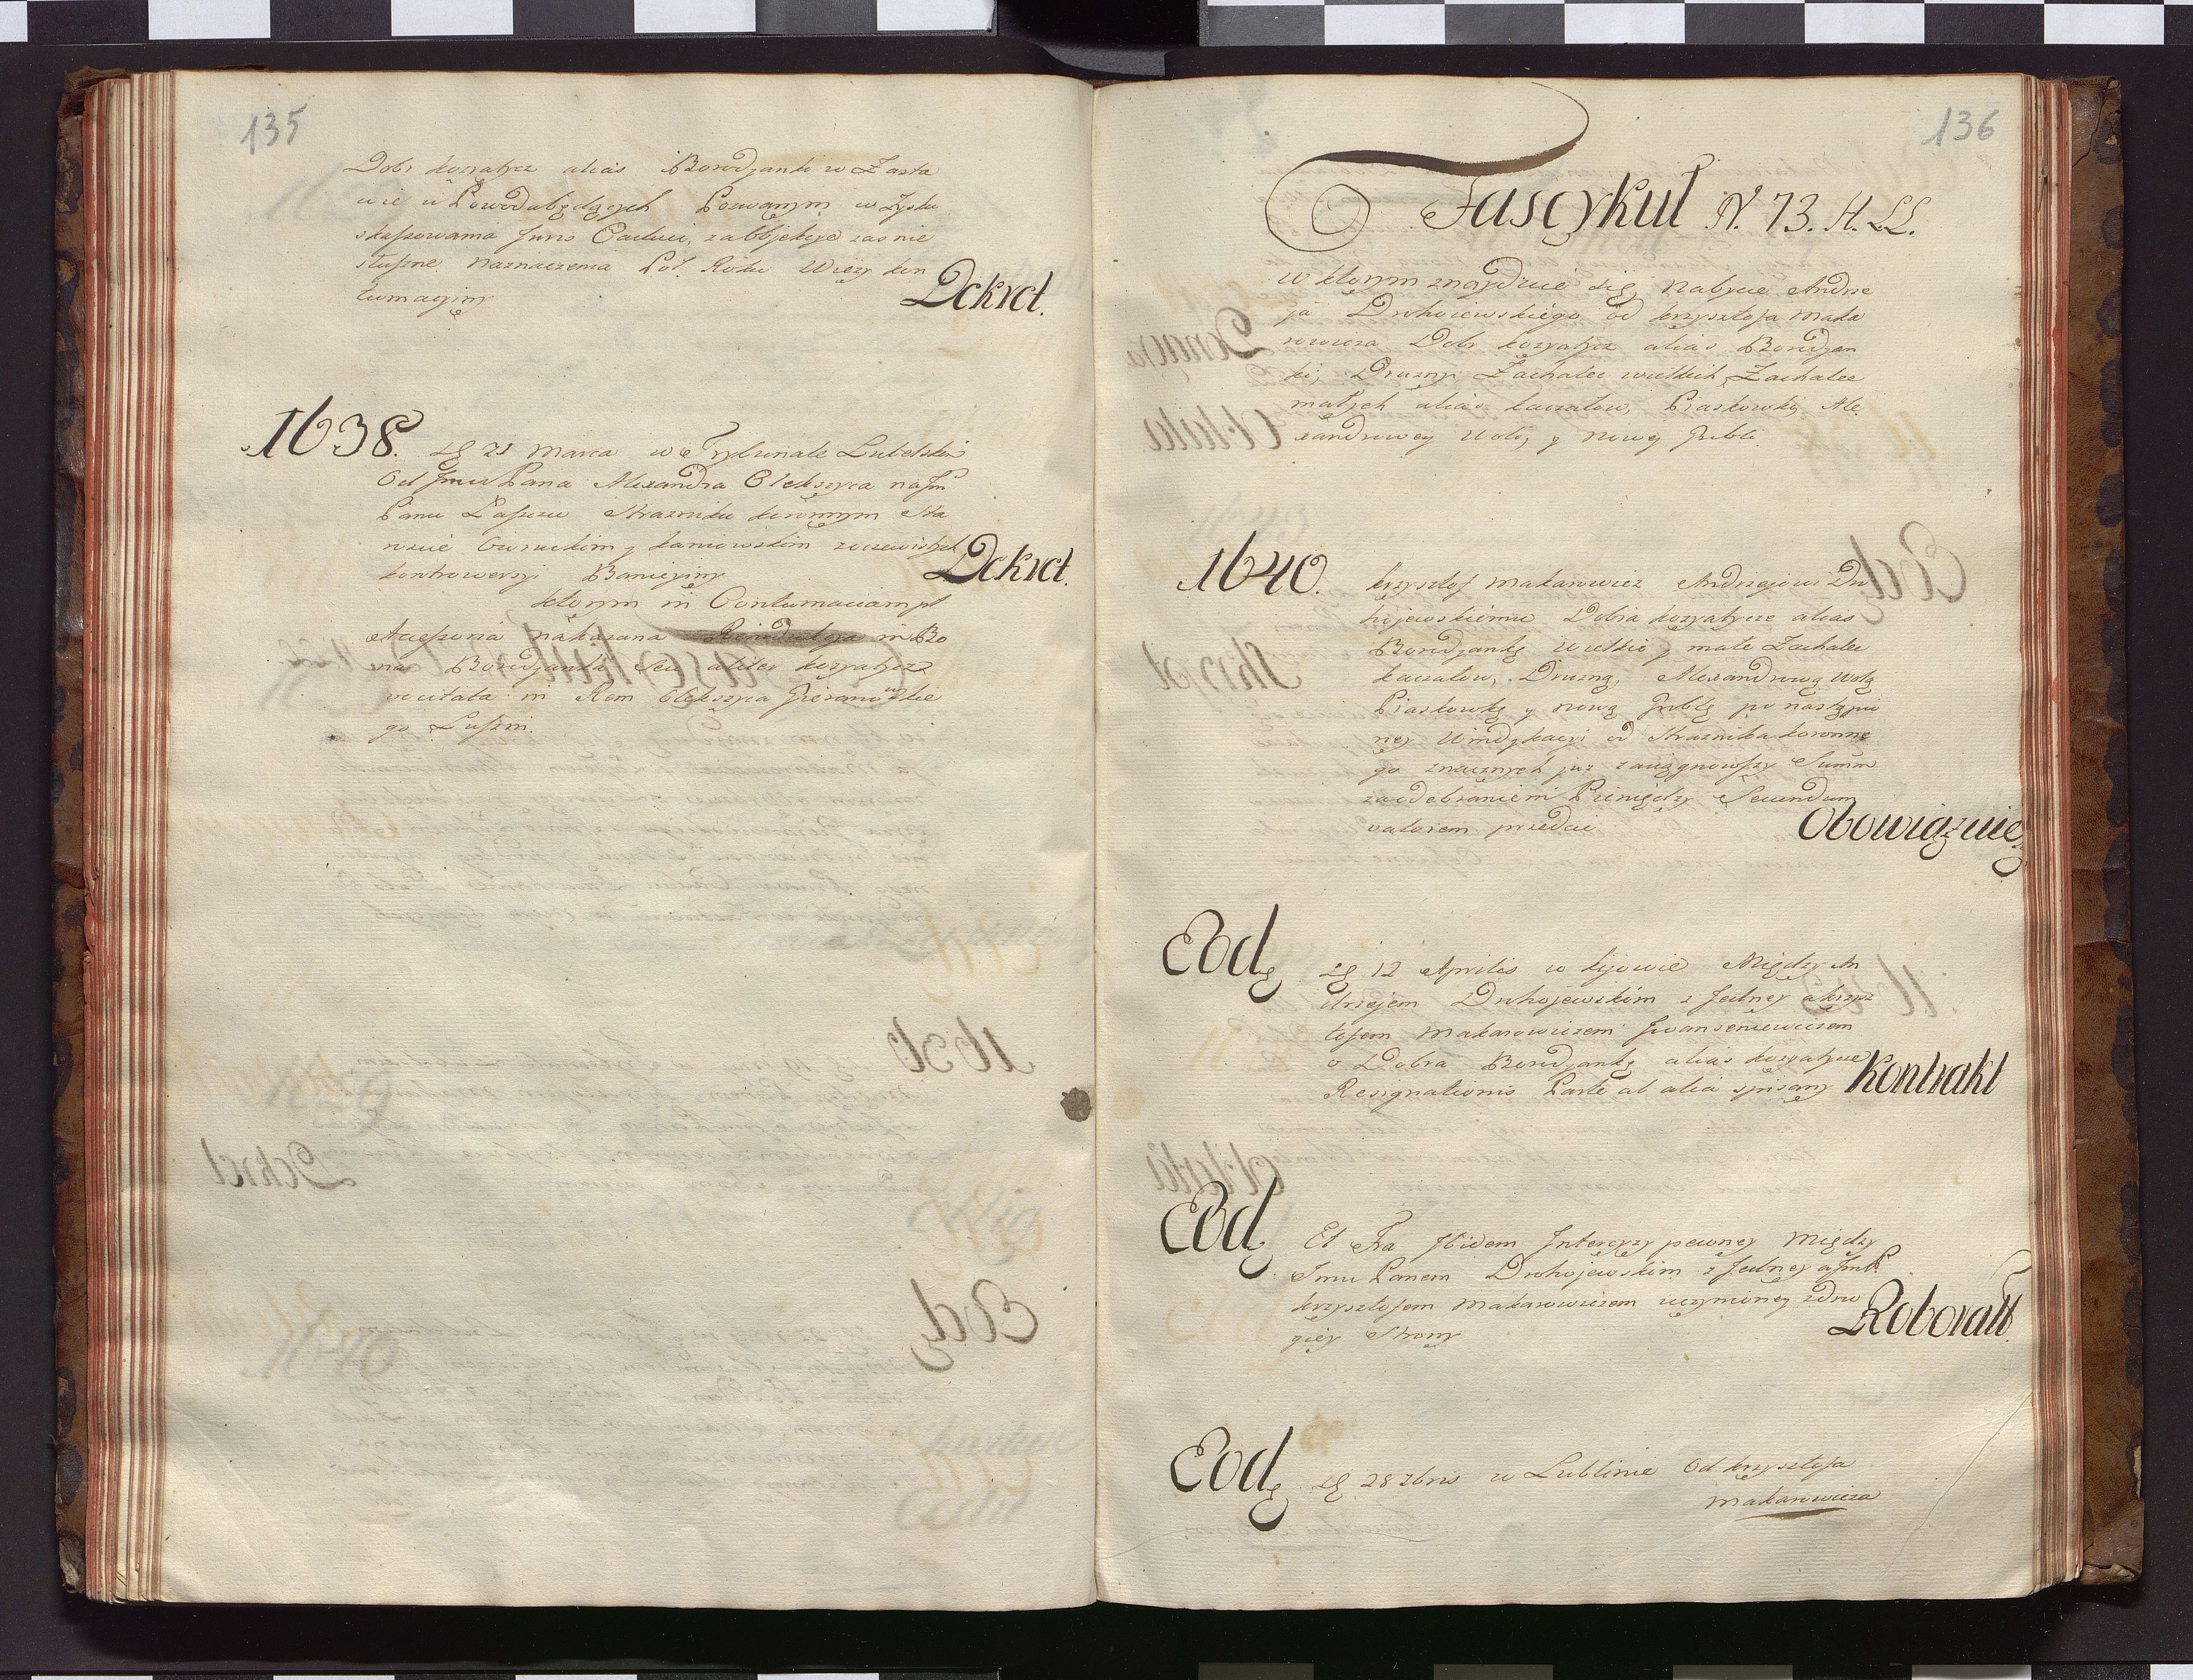 135
Dobr kozyatycz alias Borodzanki w Zasta
wie u Powodabędących Pozwanym w Zysku
skassowania Juris Caduci, zaobbjekcye zas nie
słuszne naznaczenia Poł Roku Wieży kon
tumacyiny
Dekret.
1638. 21 Marca w Trybunale Lubelskim
Od Jmci Pana Alexandra Olekszyca na Jm
Panu Łaszczu Strazniku koronnym Sta
roscie Owruckim y kaniowskim zoczewistych
kontrowersyi Banicyiny
Dekret.
ktorym in Contumaciam pt
Accessoria nakazana Reinductya in Bo
na Borodzanka seu aliter kozyatycze
vocitata in Rem Olekszyca Hieronowskie
go Luszni.
136
Fascykuł N. 73. H. LL.
w ktorym znayduie się nabycie Andrze
ja Drohoiewskiego od krzysztofa Maka
rowicza Dobr kozyatycz alias Borodzan
ki, Druzny Zachalec wielkich Zachalec
małych alias kaczałow, Piaskowki, Ale
xandrowey Woli, y nowey Grobli.
1640. krzysztof Makarowicz Andrzejowi Dro
hojewskiemu Dobra kozyatycze alias
Borodzankę Wielkie y małe Zachalce
kaczałow, Druzną, Alexandrową Wolą
Piaskowkę y nową Groblę po nastąpio
ney Windykacyi od Straznika koronne
go znacznych juz zaciągnowszy Summ
za odebraniem Pieniędzy Secundum
valorem przedai
Obowiązuie
Eod 12 Aprilis w kijowie Między An
drzejem Drohojewskim z Jedney akrzysz
tofem Makarowiczem Jwanseniewiczem
o Dobra Borodzankę alias kozyatycze
Resignationis Parte ab alia spisany
kontrakt
Eod Et Fra Jbidem Jntercyzy pewney Między
Jmci Panem Drohojewskim z Jedney a JmP.
krzysztofem Makarowiczem uczynioney zdru
giey Strony
Roboratt.
Eod 28 Xbris w Lublinie Od krzysztofa
Makarowicza